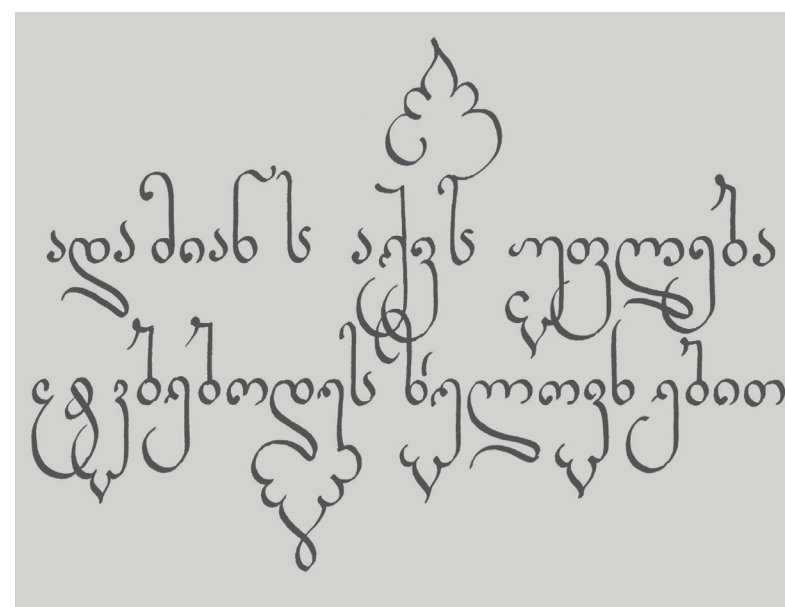 ადამიანს აქვს უფლება
ტკბებოდეს ხელოვნებით